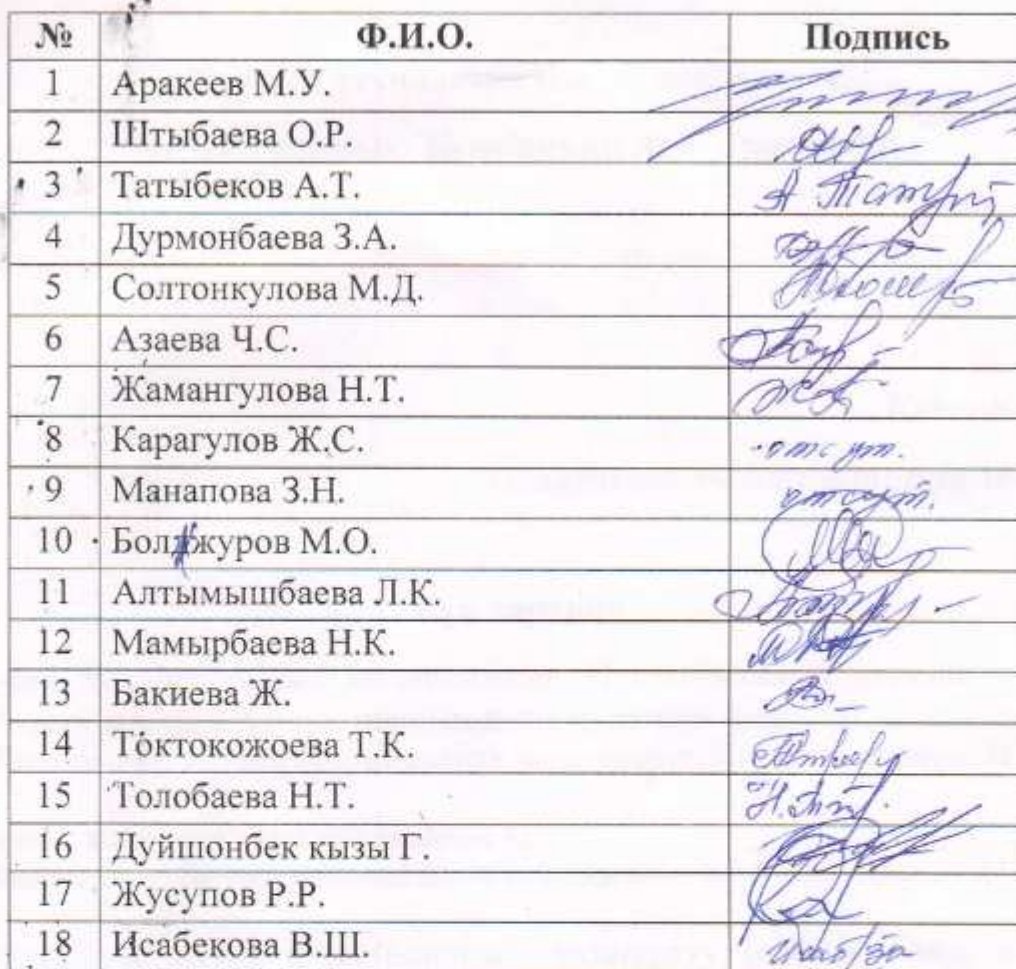 № Ф.И.О. Подпись
1 Аракеев М.У.
2 Штыбаева О.Р.
3 Татыбеков А.Т.
4 Дурмонбаева З.А.
5 Солтонкулова М.Д.
6 Азаева Ч.С.
7 Жамангулова Н.Т.
8 Карагулов Ж.С. отсут.
9 Манапова З.Н. отсут.
10 Болджуров М.О.
11 Алтымышбаева Л.К.
12 Мамырбаева Н.К.
13 Бакиева Ж.
14 Токтокожоева Т.К.
15 Толобаева Н.Т.
16 Дуйшонбек кызы Г.
17 Жусупов Р.Р.
18 Исабекова В.Ш.